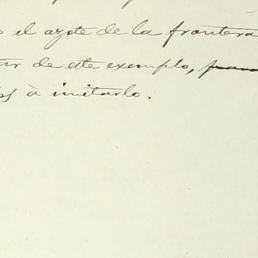 el azote de la frontera
de este exemplo,
à imitarlo.